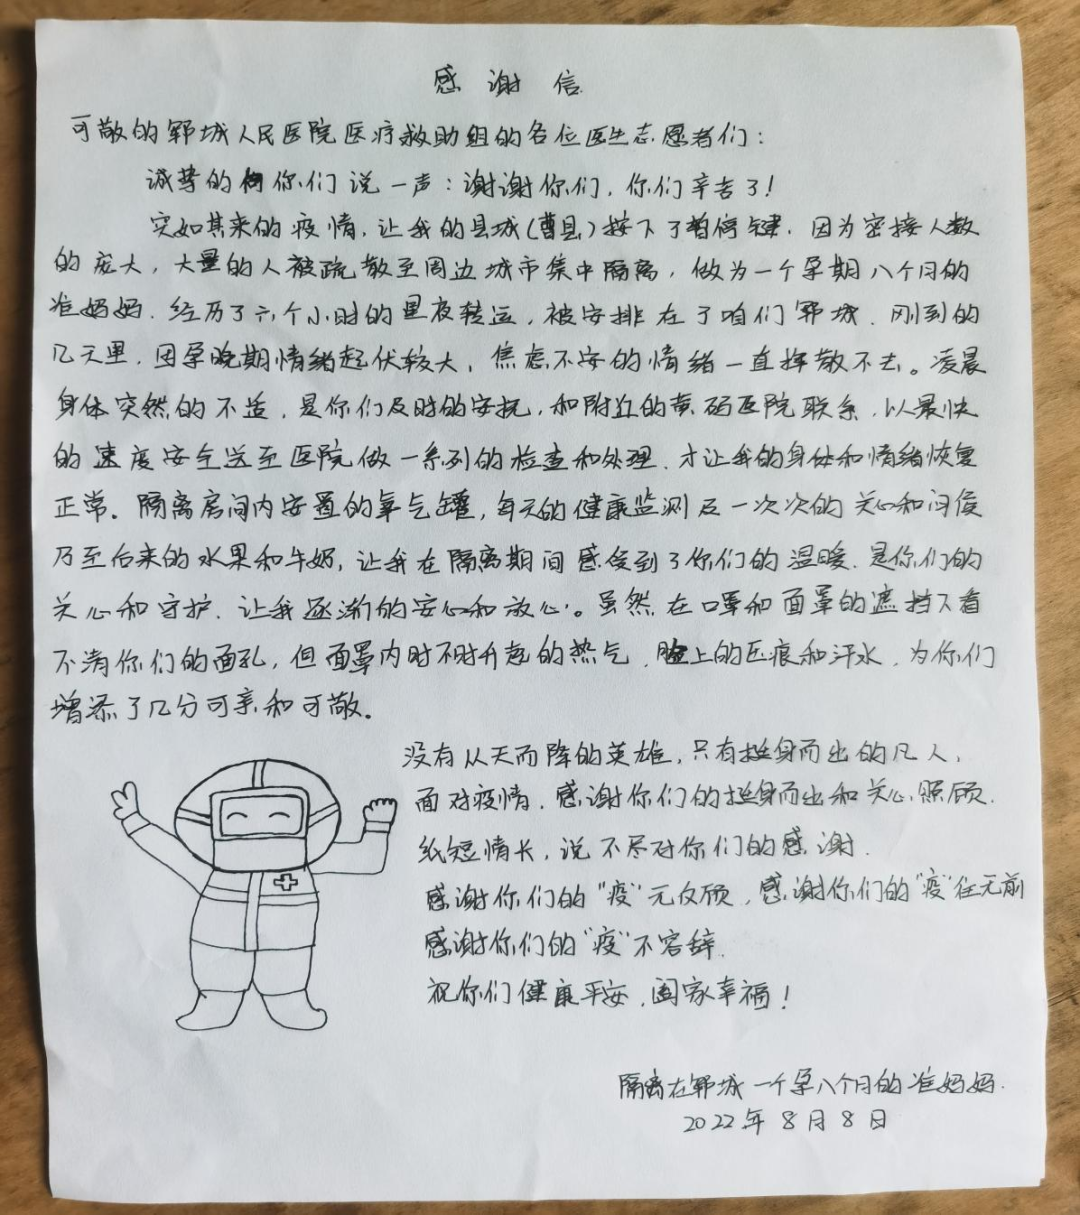 感谢信
可敬的郓城人民医院医疗救助组的各位医生志愿者们：
诚挚的向你们说一声：谢谢你们，你们辛苦了！
突如其来的疫情，让我的县城（曹县）按下了暂停键．因为密接人数
的庞大，大量的人被疏散至周边城市集中隔离，做为一个孕期八个月的
准妈妈．经历了六个小时的星夜转运，被安排在了咱们郓城．刚到的
几天里，因孕晚期情绪起伏较大，焦虑不安的情绪一直挥散不去。凌晨
身体突然的不适，是你们及时的安抚，和附近的黄码医院联系，以最快
的速度安全送至医院做一系列的检查和处理．才让我的身体和情绪恢复
正常．隔离房间内安置的氧气罐，每天的健康监测及一次次的关心和问侯
乃至后来的水果和牛奶，让我在隔离期间感受到了你们的温暖．是你们的
关心和守护．让我逐渐的安心和放心。虽然在口罩和面罩的遮挡下看
不清你们的面孔，但面罩内时不时升起的热气．脸上的压痕和汗水，为你们
增添了几分可亲和可敬。
没有从天而降的英雄，只有挺身而出的凡人，
面对疫情．感谢你们的挺身而出和关心照顾．
纸短情长，说不尽对你们的感谢．
感谢你们的“疫”无反顾，感谢你们的“疫”往无前
感谢你们的“疫”不容辞．
祝你们健康平安，阖家幸福！
隔离在郓城一个孕八个月的准妈妈．
2022年8月8日